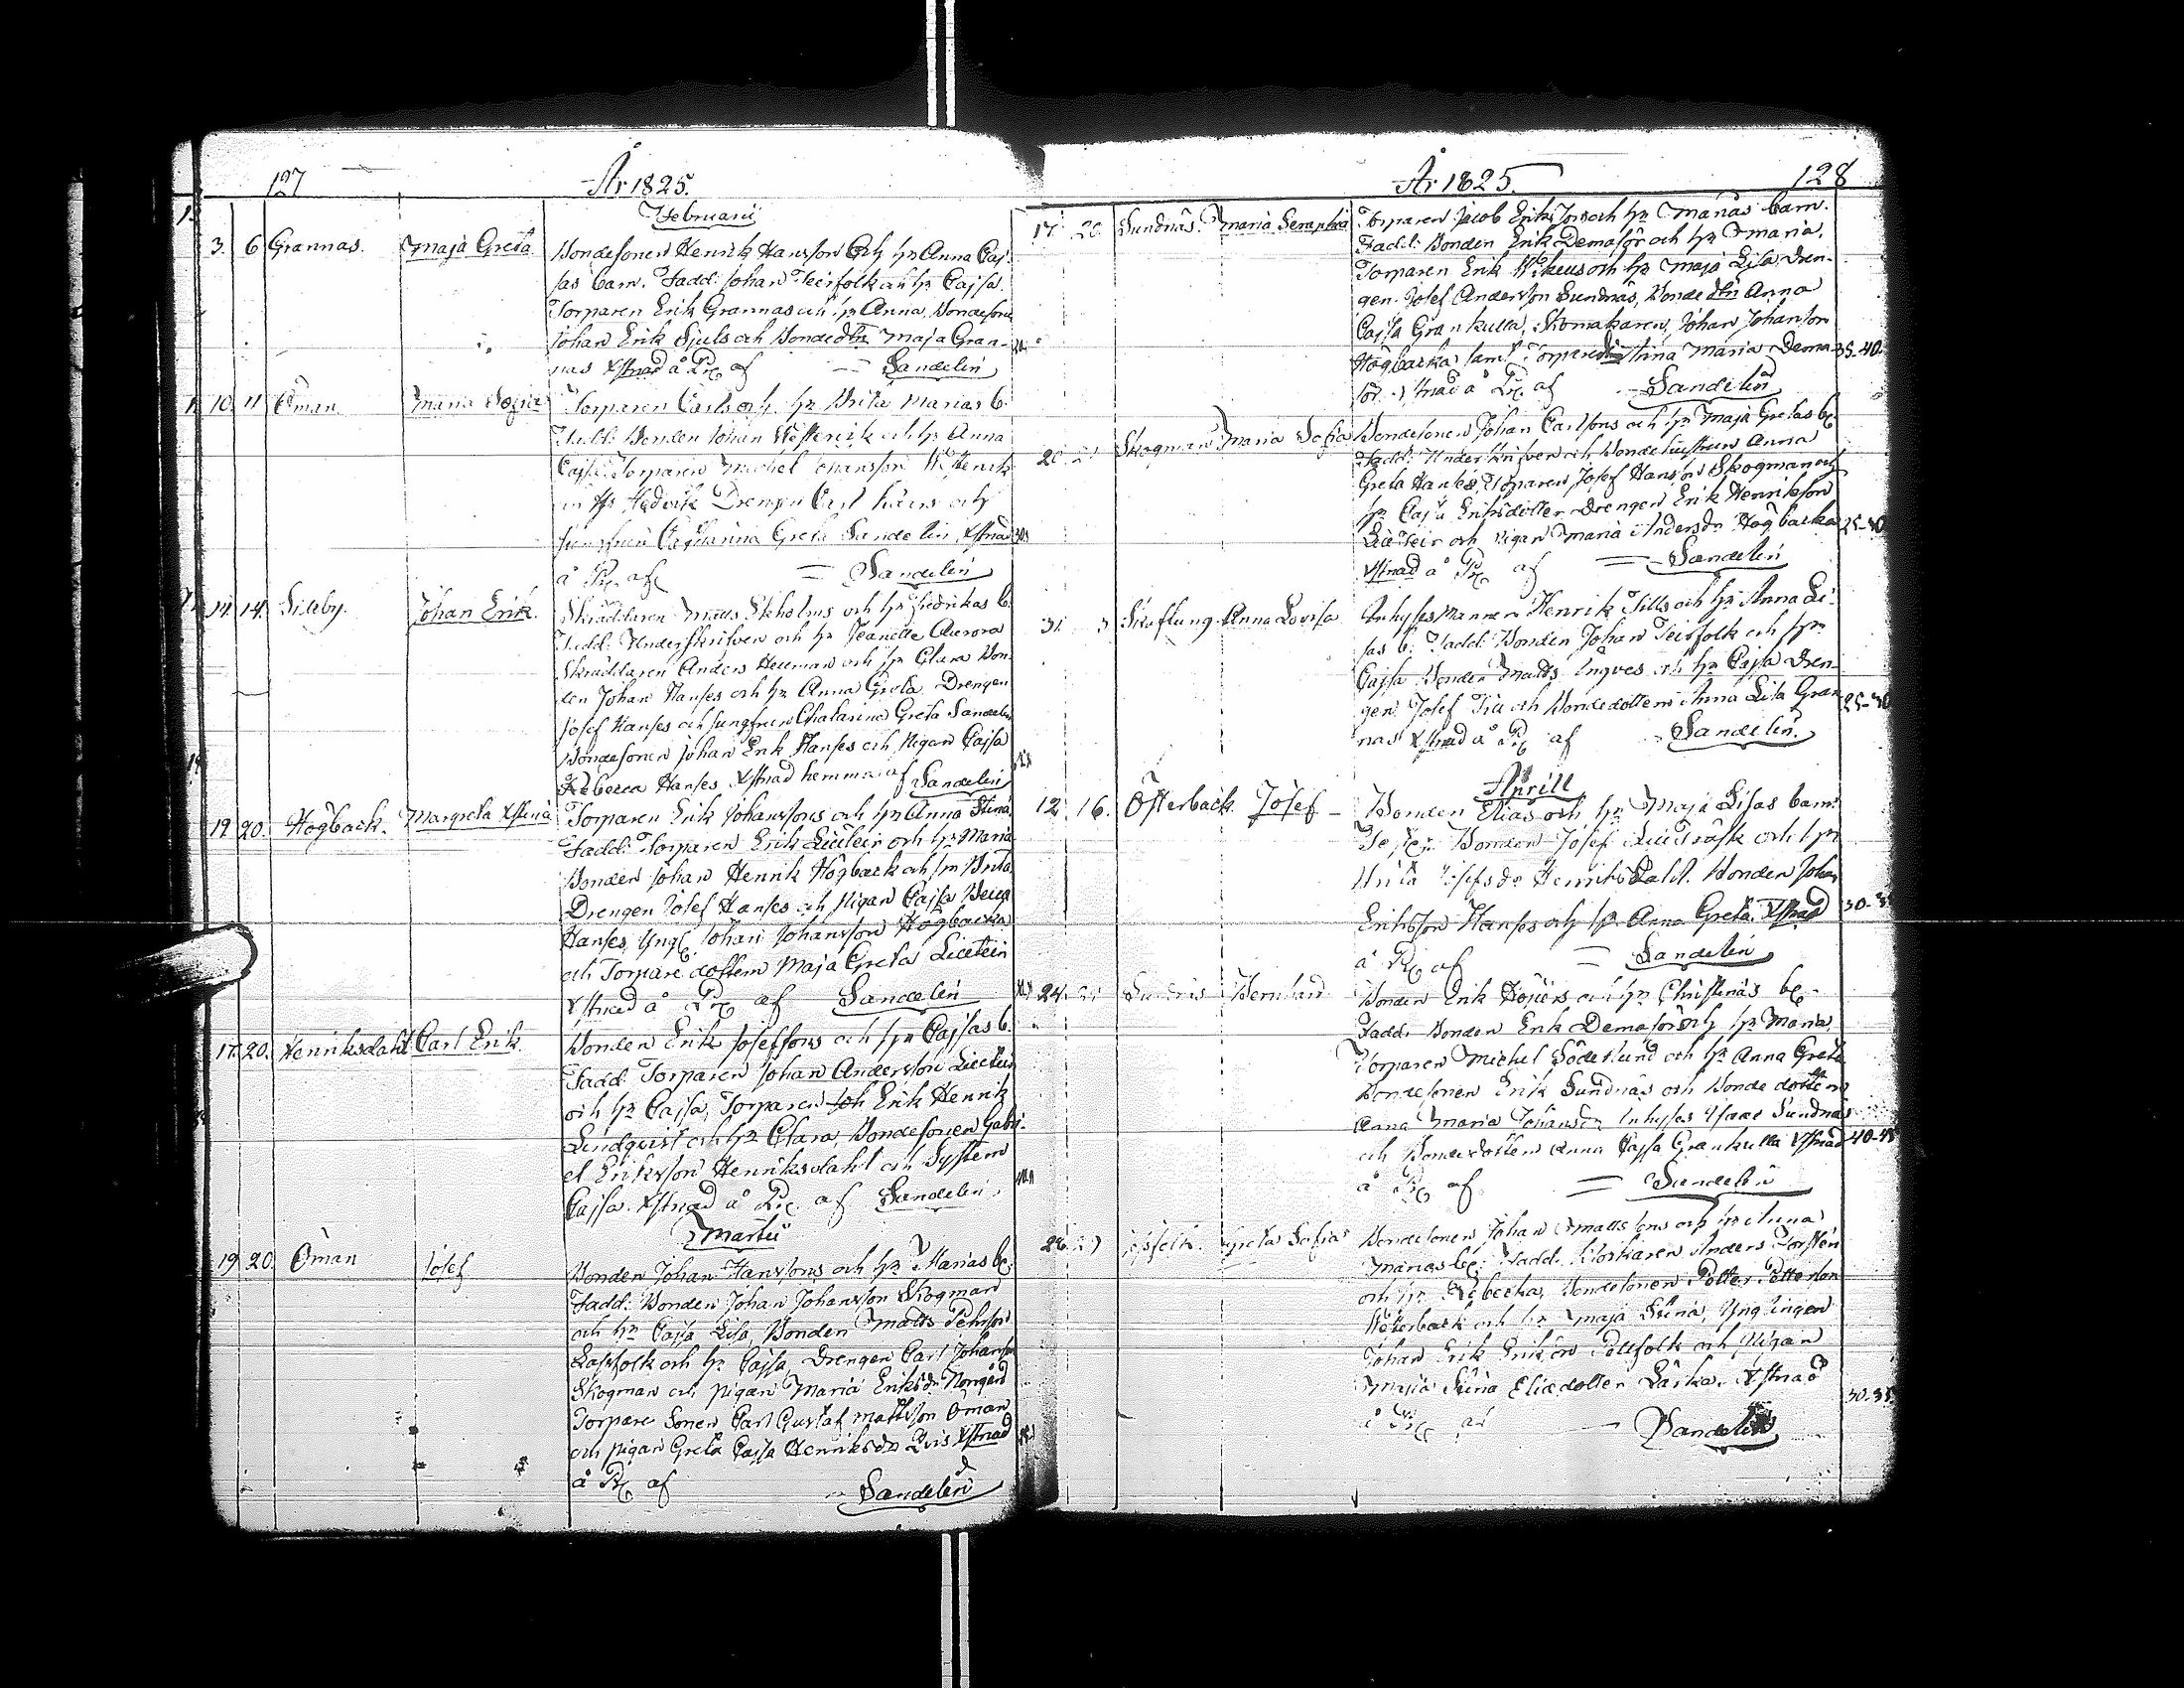 127
År 1825.
Februarii
3. 6 Grannas. Maja Greta Bondesonen Henrik Hansson och hr Anna Caj-
sas barn. Fadd: Johan Teirfolk och hr Cajsa.
Torparen Erik Grannas och hr Anna, Bondesonen
Johan Erik Sjuls och Bondedtr Maja Gran-
nas Xstnad å Pr. af Sandelin
10 11 Öman Maria Sofia Torparen Carls och hr Brita Marias b.
Fadd: Bonden Johan och hr Anna
Cajsa Torparen Michel Johansson
Hedvik Drengen Carl och
Jungfrun Catharina Greta Sandelin, Xstnad
å Pr. af Sandelin
11. 14. Johan Erik. Skräddaren Matts Ekholms och hr Fredrikas b.
Fadd: Underskrifven och hr Jeanette Aurora
Skräddaren Anders och hr Clara Bon-
den Johan Hanses och hr Anna Greta Drengen
Josef Hanses och Jungfrun Chatarina Greta Sandelin
Bondesonen Johan Erik Hanses och Pigan Cajsa
Rebecca Hanses Xstnad hemma af Sandelin
19 20. Högback. Margreta Xstina Torparen Erik Johanssons och hr Anna Stinas
Fadd: Torparen Erik och hr Maria
Bonden Johan Henrik Högback och hr Brita
Drengen Josef Hanses och Pigan Cajsa
Hanses Yngl. Johan Johansson Högbacka
och Torpare dottern Maja Greta
Xstnad å Pr. af Sandelin
17. 20. Henriksdahl Carl Erik. Bonden Erik Josefsons och hr Cajsas b.
Fadd: Torparen Johan Andersson
och hr Cajsa, Torparen Erik Henrik
Lindqvist och hr Clara, Bondesonen Gabri-
el Eriksson Henriksdahl och Systern
Cajsa. Xstnad å Pr. af Sandelin.
Martii
19 20. Öman Josef Bonden Johan Hanssons och hr Marias b.
Fadd: Bonden Johan Johansson Skogman
och hr Cajsa Lisa, Bonden Matts
och hr Cajsa, Drengen Carl Johansson
Skogman och pigan Maria Eriksdr Norrgård
Torpare Sonen Carl Gustaf Mattsson Öman
och pigan Greta Cajsa Henriksdr Xstnad
å Pr. af Sandelin
År 1825.
128
17. 20 Sundnäs. Maria Seraphia Torparen Jacob Eriksons och hr Marias barn.
Fadd: Bonden Erik Demasör och hr Maria,
Torparen Erik och hr Maja Lisa, Dren-
gen Josef Andersson Sundnäs, Bonde dtr Anna
Cajsa Grankulla, Skomakaren, Johan Johanson
Högbacka samt Torparedtr Stina Maria Dema- 35-40.
sör. Xstnad å Pr. af Sandelin
20 Skogman Maria Sofia Bondesonen Johan Carlssons och hr Maja Gretas b.
Fadd: Underskrifven och Anna
Greta Hanses, Torparen Josef Hansson Skogman och
hr Cajsa Eriksdotter Drengen Erik Henriksson
och pigan Maria Andersdr Högbacka 25-30
Xstnad å Pr. af Sandelin
31. 3 Anna Lovisa Inhysesmannen Henrik Tills och hr Anna Li-
sas b. Fadd: Bonden Johan Teirfolk och hr
Cajsa Bonden Matts Ingves och hr Cajsa Dren-
gen Josef Till och Bondedottern Anna Lisa Gran- 25-30
nas Xstnad å Pr. af Sandelin.
Aprill
12. 16. Österback. Josef Bonden Elias och hr Maja Lisas barn.
Bonden Josef och hr
Brita Josefsdr Henriksdahl. Bonden Johan
Eriksson Hanses och hr Anna Greta. Xstnad 30-35
å Pr. af Sandelin
24. Bernhard Bonden Erik och hr Christinas b.
Fadd: Bonden Erik Demasör och hr Maria
Torparen Michel Söderlund och hr Anna Greta
Bondesonen Erik Sundnäs och Bonde dottern
Anna Maria Johansdr Inhyses Isaac Sundnäs
och Bondedottern Anna Cajsa Grankulla Xstnad 40-45
å Pr. af Sandelin
Greta Sofia Bondesonen Johan Mattsons och hr Anna
Marias b. Fadd: Klockaren Anders
och hr Rebecka, Bondesonen Petter Petterson
och hr Maja Stina, Ynglingen
Johan Erik Erikson och Pigan
Maja Stina Eliedotter Xstnad 30-35
å Pr. af Sandelin